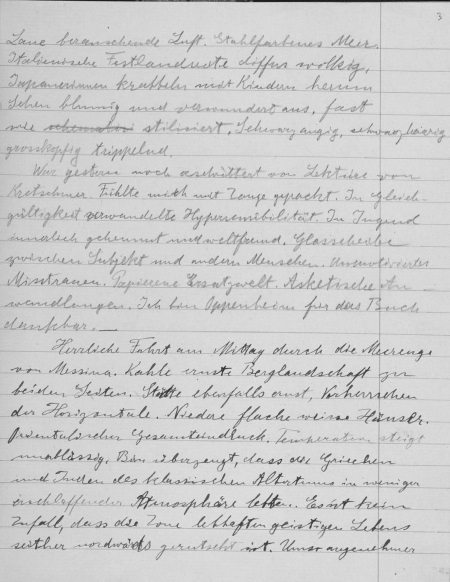 3
Laue berauschende Luft. Stahlfarbenes Meer.
Italienische Festlandseite diffus wolkig,
Japanerinnen krabbeln mit Kindern herum
Sehen blumig und verwundert aus, fast
wie stilisiert. Schwarzäugig, schwarzhaarig
grossköpfig trippelnd.
War gestern noch erschüttert von Lektüre von
Kretschmer. Fühlte mich wie mit Zange gepackt. In Gleich-
gültigkeit verwandelte Hypersensibilität. In Jugend
innerlich gehemmt und weltfremd. Glasscheibe
zwischen Subjekt und andern Menschen. Unmotiviertes
Misstrauen. Papierene Ersatzwelt. Asketische An-
wandlungen. Ich bin Oppenheim für das Buch
dankbar. —
Herrliche Fahrt am Mittag durch die Meerenge
von Messina. Kahle ernste Berglandschaft zu
beiden Seiten. Städte ebenfalls ernst, Vorherrschen
der Horizontale. Niedere flache weisse Häuser.
Orientalischer Gesamteindruck. Temperatur steigt
unablässig. Bin überzeugt, dass die Griechen
und Juden des klassischen Altertums in weniger
erschlaffender Atmosphäre lebten. Es ist kein
Zufall, dass die Zone lebhaften geistigen Lebens
seither nordwärts gerutscht ist. Unser angenehmer